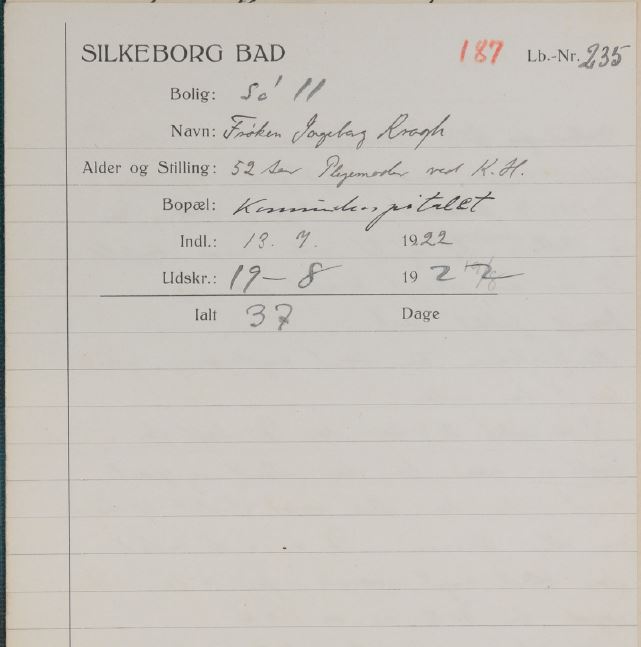 SILKEBORG BAD 187 Lb.-Nr. 235
Bolig: Sø 11
Navn: Frøken Ingeborg Kragh
Alder og Stilling: 52 Aar Plejemoder ved K. H.
Bopæl: Kommunehospitalet
Indl.: 13. 7. 1922
Udskr.: 19 – 8 1922
Ialt 37 Dage